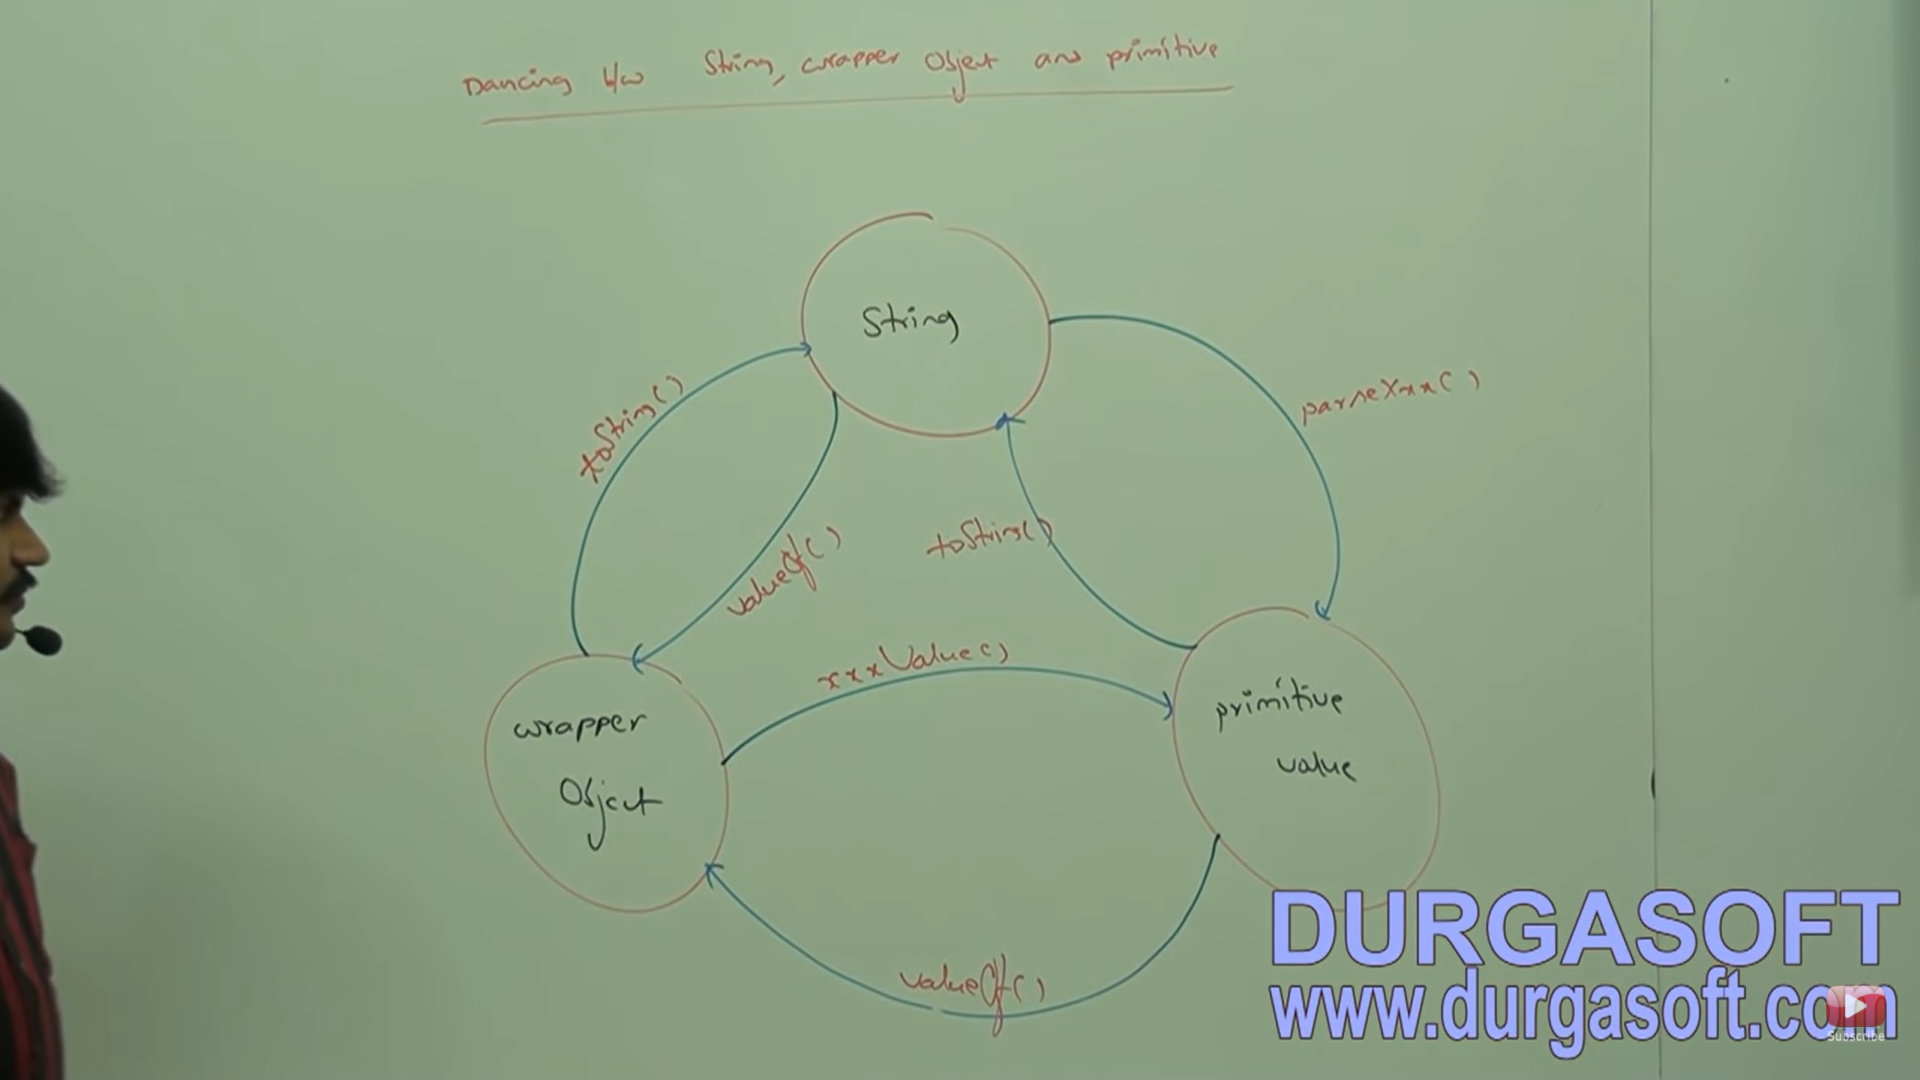 Dancing b/w String, wrapper Object and primitive
String
toString()
parseXxx()
valueOf()
toString()
xxxValue()
wrapper
Object
primitive
value
valueOf()
DURGASOFT
www.durgasoft.com
Subscribe